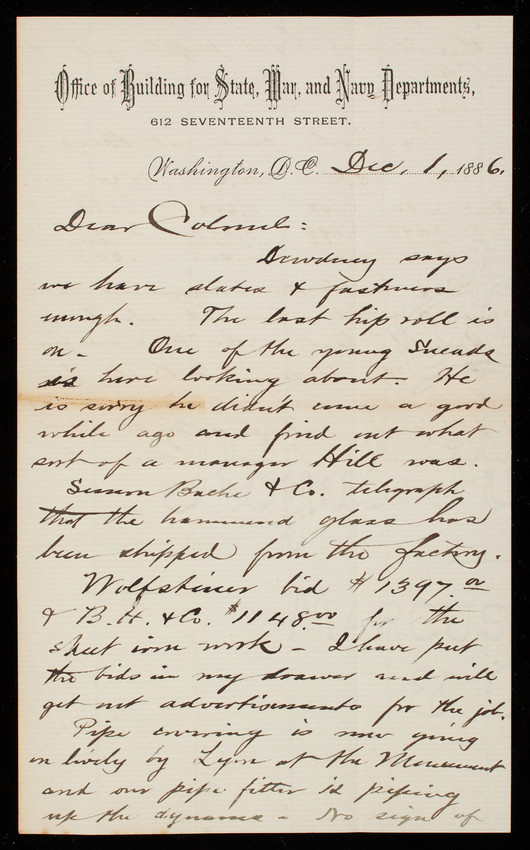 Office of Building for State, War, and Navy Departments,
612 SEVENTEENTH STREET.
Washington, D.C. Dec. 1, 1886.
Dear Colonel:
Dewdney says
we have slates & fasteners
enough. The last hip roll is
on - One of the young Sneads
is here looking about. He
is sorry he didn't come a good
while ago and find out what
sort of a manager Hill was.
Semon Bache & Co. telegraph
that the hammered glass has
been shipped from the factory.
Wolfsteiner bid $1397.00
& B.H. & Co. $1148.00 for the
sheet iron work - I have put
the bids in my drawer and will
get out advertisements for the job.
Pipe covering is now going
on lively by Lyon at the Monument
and our pipe fitter is piping
up the dynamo - No sign of